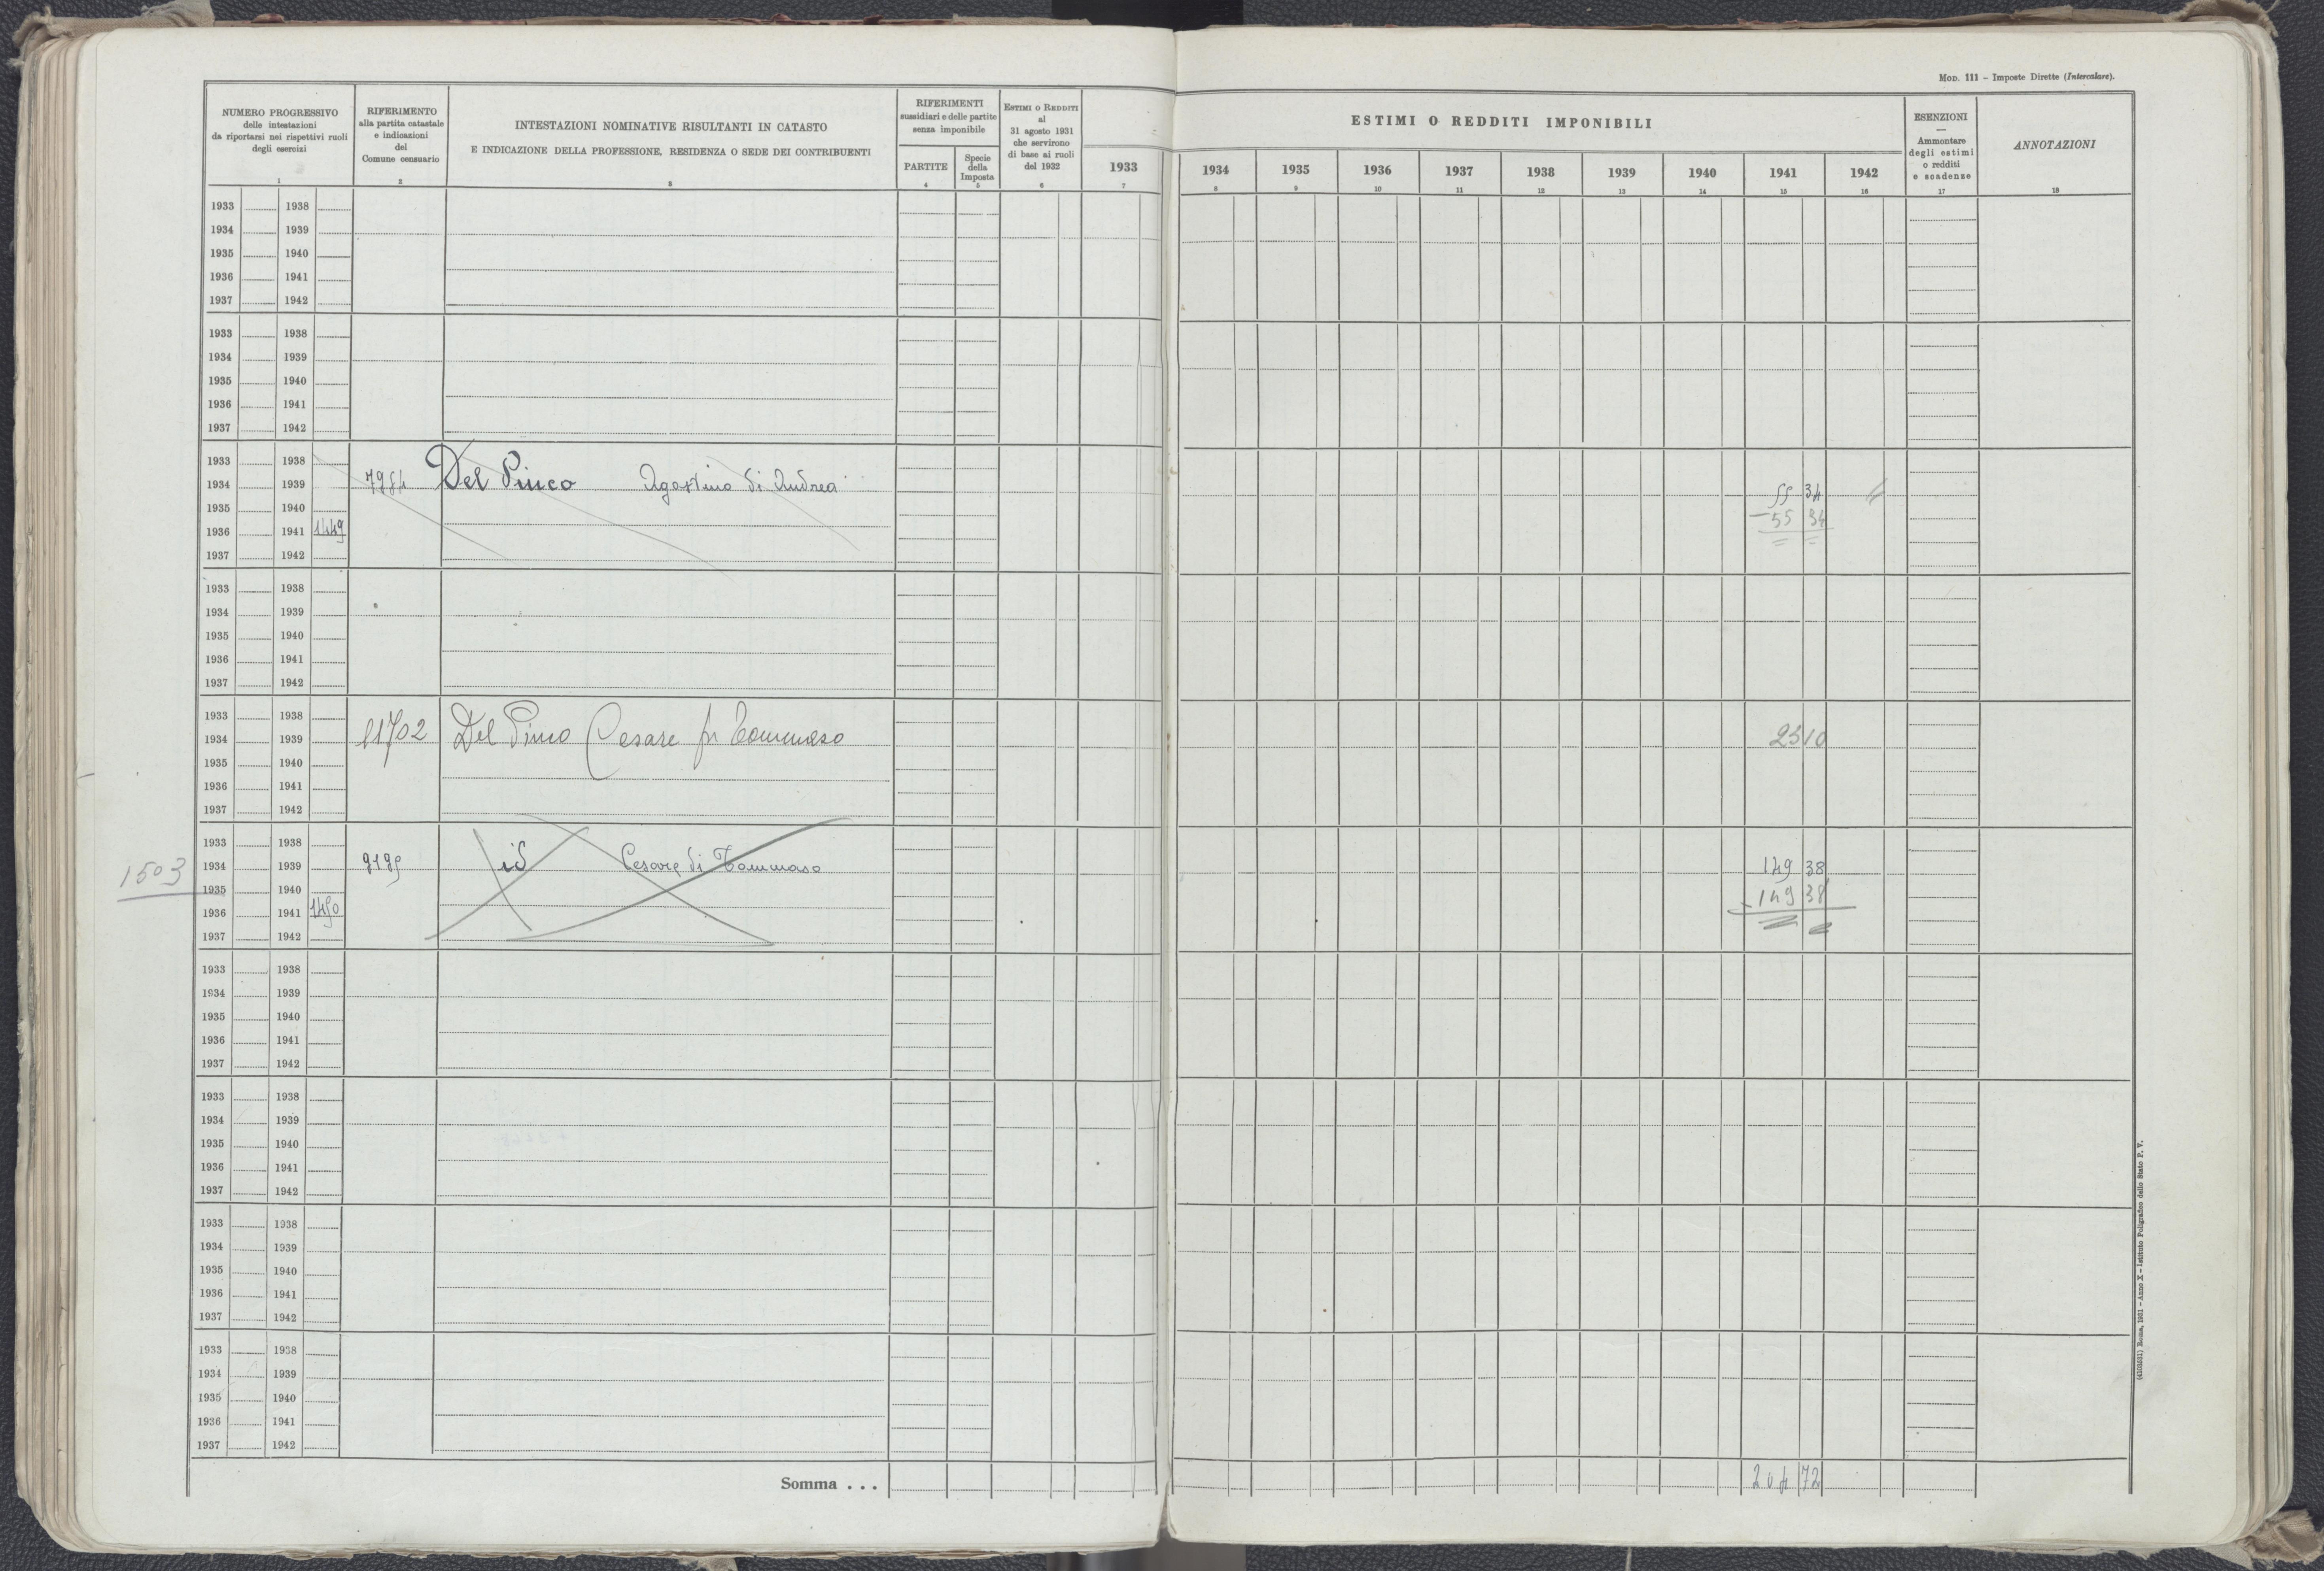 MOD. 111 – Imposte Dirette (Intercalare).
NUMERO PROGRESSIVO
delle intestazioni
da riportarsi nei rispettivi ruoli
degli esercizi
1
RIFERIMENTO
alla partita catastale
e indicazioni
del
Comune censuario
2
INTESTAZIONI NOMINATIVE RISULTANTI IN CATASTO
E INDICAZIONE DELLA PROFESSIONE, RESIDENZA O SEDE DEI CONTRIBUENTI
3
RIFERIMENTI
sussidiari e delle partite
senza imponibile
PARTITE
4
Specie
della
Imposta
5
ESTIMI O REDDITI
al
31 agosto 1931
che servirono
di base ai ruoli
del 1932
6
ESTIMI O REDDITI IMPONIBILI
1933 1934 1935 1936 1937 1938 1939 1940 1941 1942
7 8 9 10 11 12 13 14 15 16
ESENZIONI
—
Ammontare
degli estimi
o redditi
e scadenze
17
ANNOTAZIONI
18
1933 1938
1934 1939
1935 1940
1936 1941
1937 1942
1933 1938
1934 1939
1935 1940
1936 1941
1937 1942
1933 1938
1934 1939 Del Pinco Agostino di Andrea 55 34
1935 1940 – 55 34
1936 1941 1449 = =
1937 1942
1933 1938
1934 1939
1935 1940
1936 1941
1937 1942
1933 1938
1934 1939 11702 Del Pinco Cesare fu Tommaso 2310
1935 1940
1936 1941
1937 1942
1933 1938
1503 1934 1939 9195 id Cesare di Tommaso 149 38
1935 1940 – 149 38
1936 1941 1450 = =
1937 1942
1933 1938
1934 1939
1935 1940
1936 1941
1937 1942
1933 1938
1934 1939
1935 1940
1936 1941
1937 1942
1933 1938
1934 1939
1935 1940
1936 1941
1937 1942
1933 1938
1934 1939
1935 1940
1936 1941
1937 1942
Somma . . . 204 72
(4103631) Roma, 1931 – Anno X – Istituto Poligrafico dello Stato P. V.